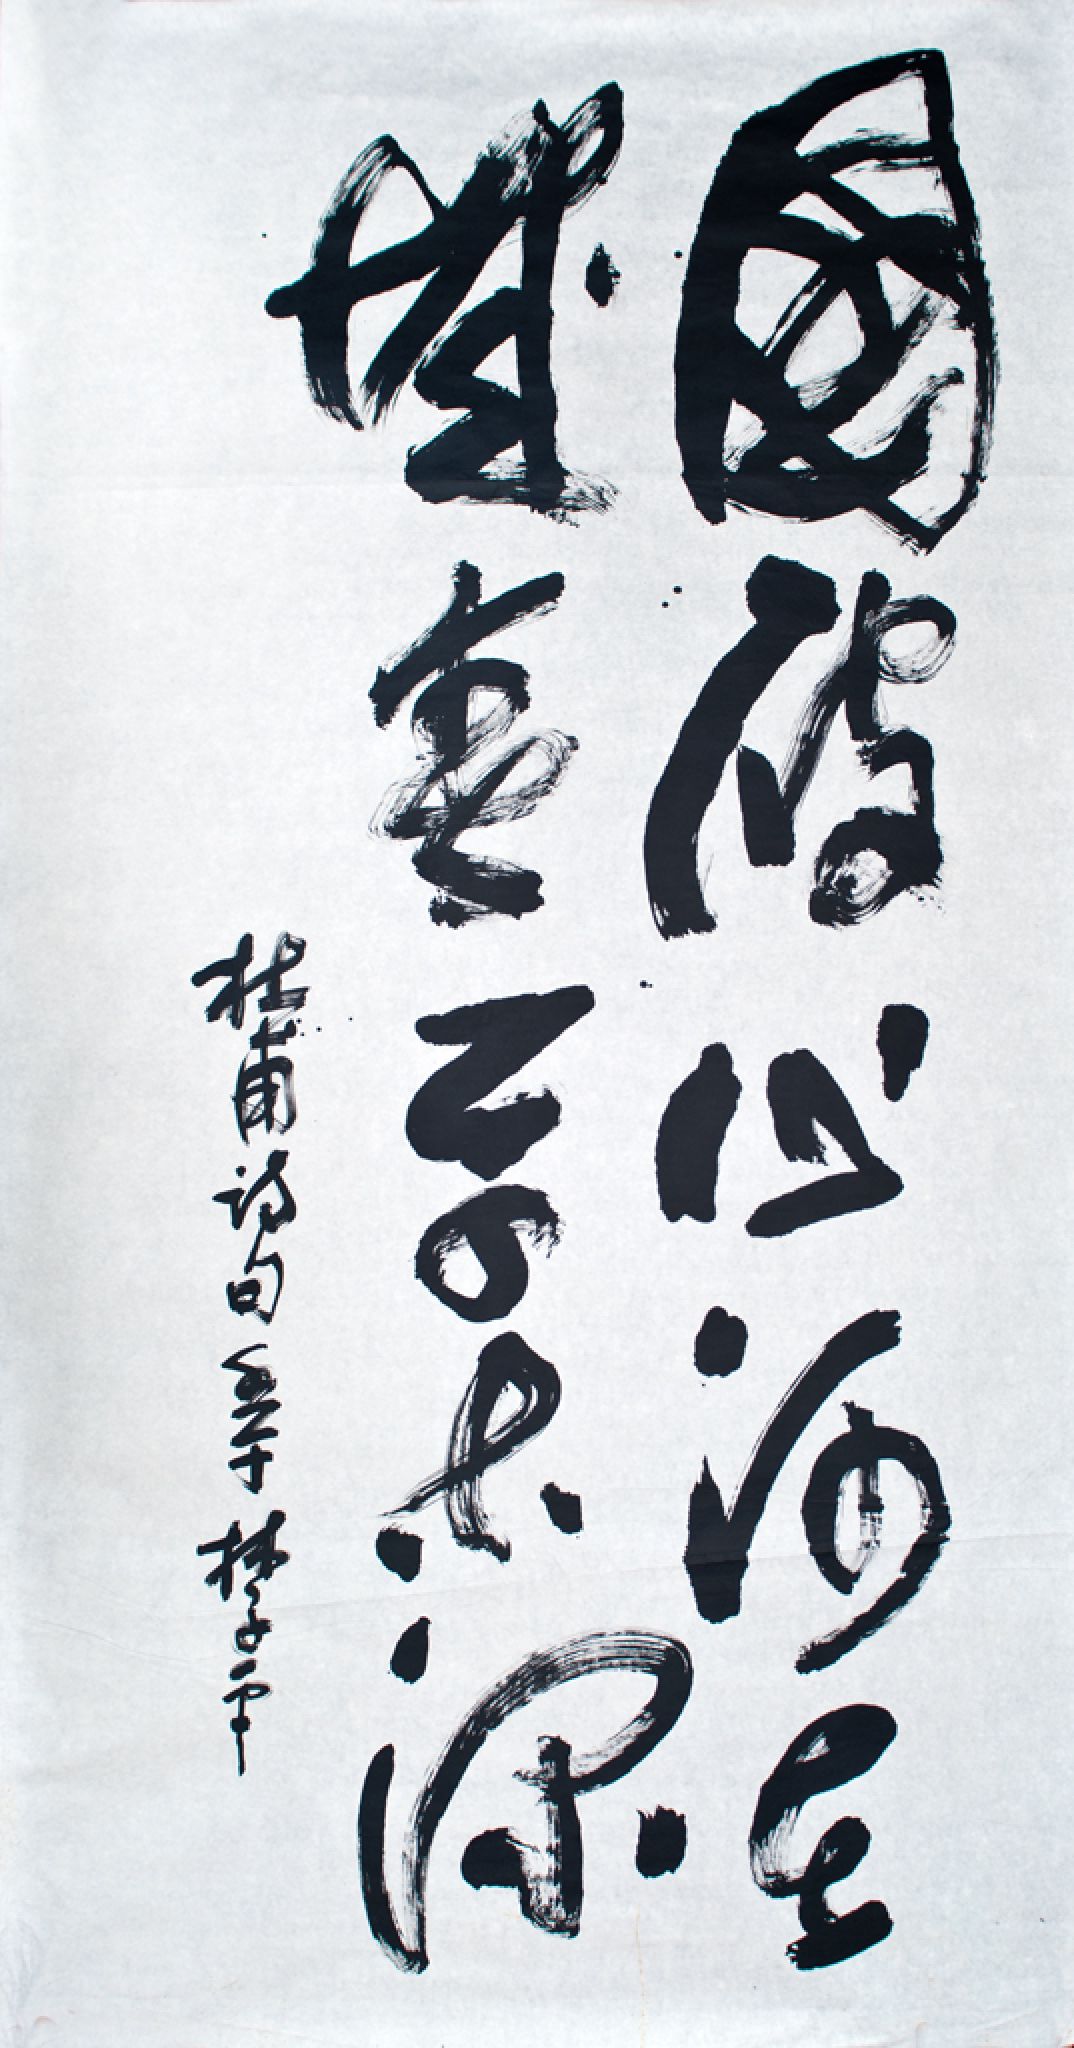 國破山河在
城春草木深
杜甫詩句 林子平